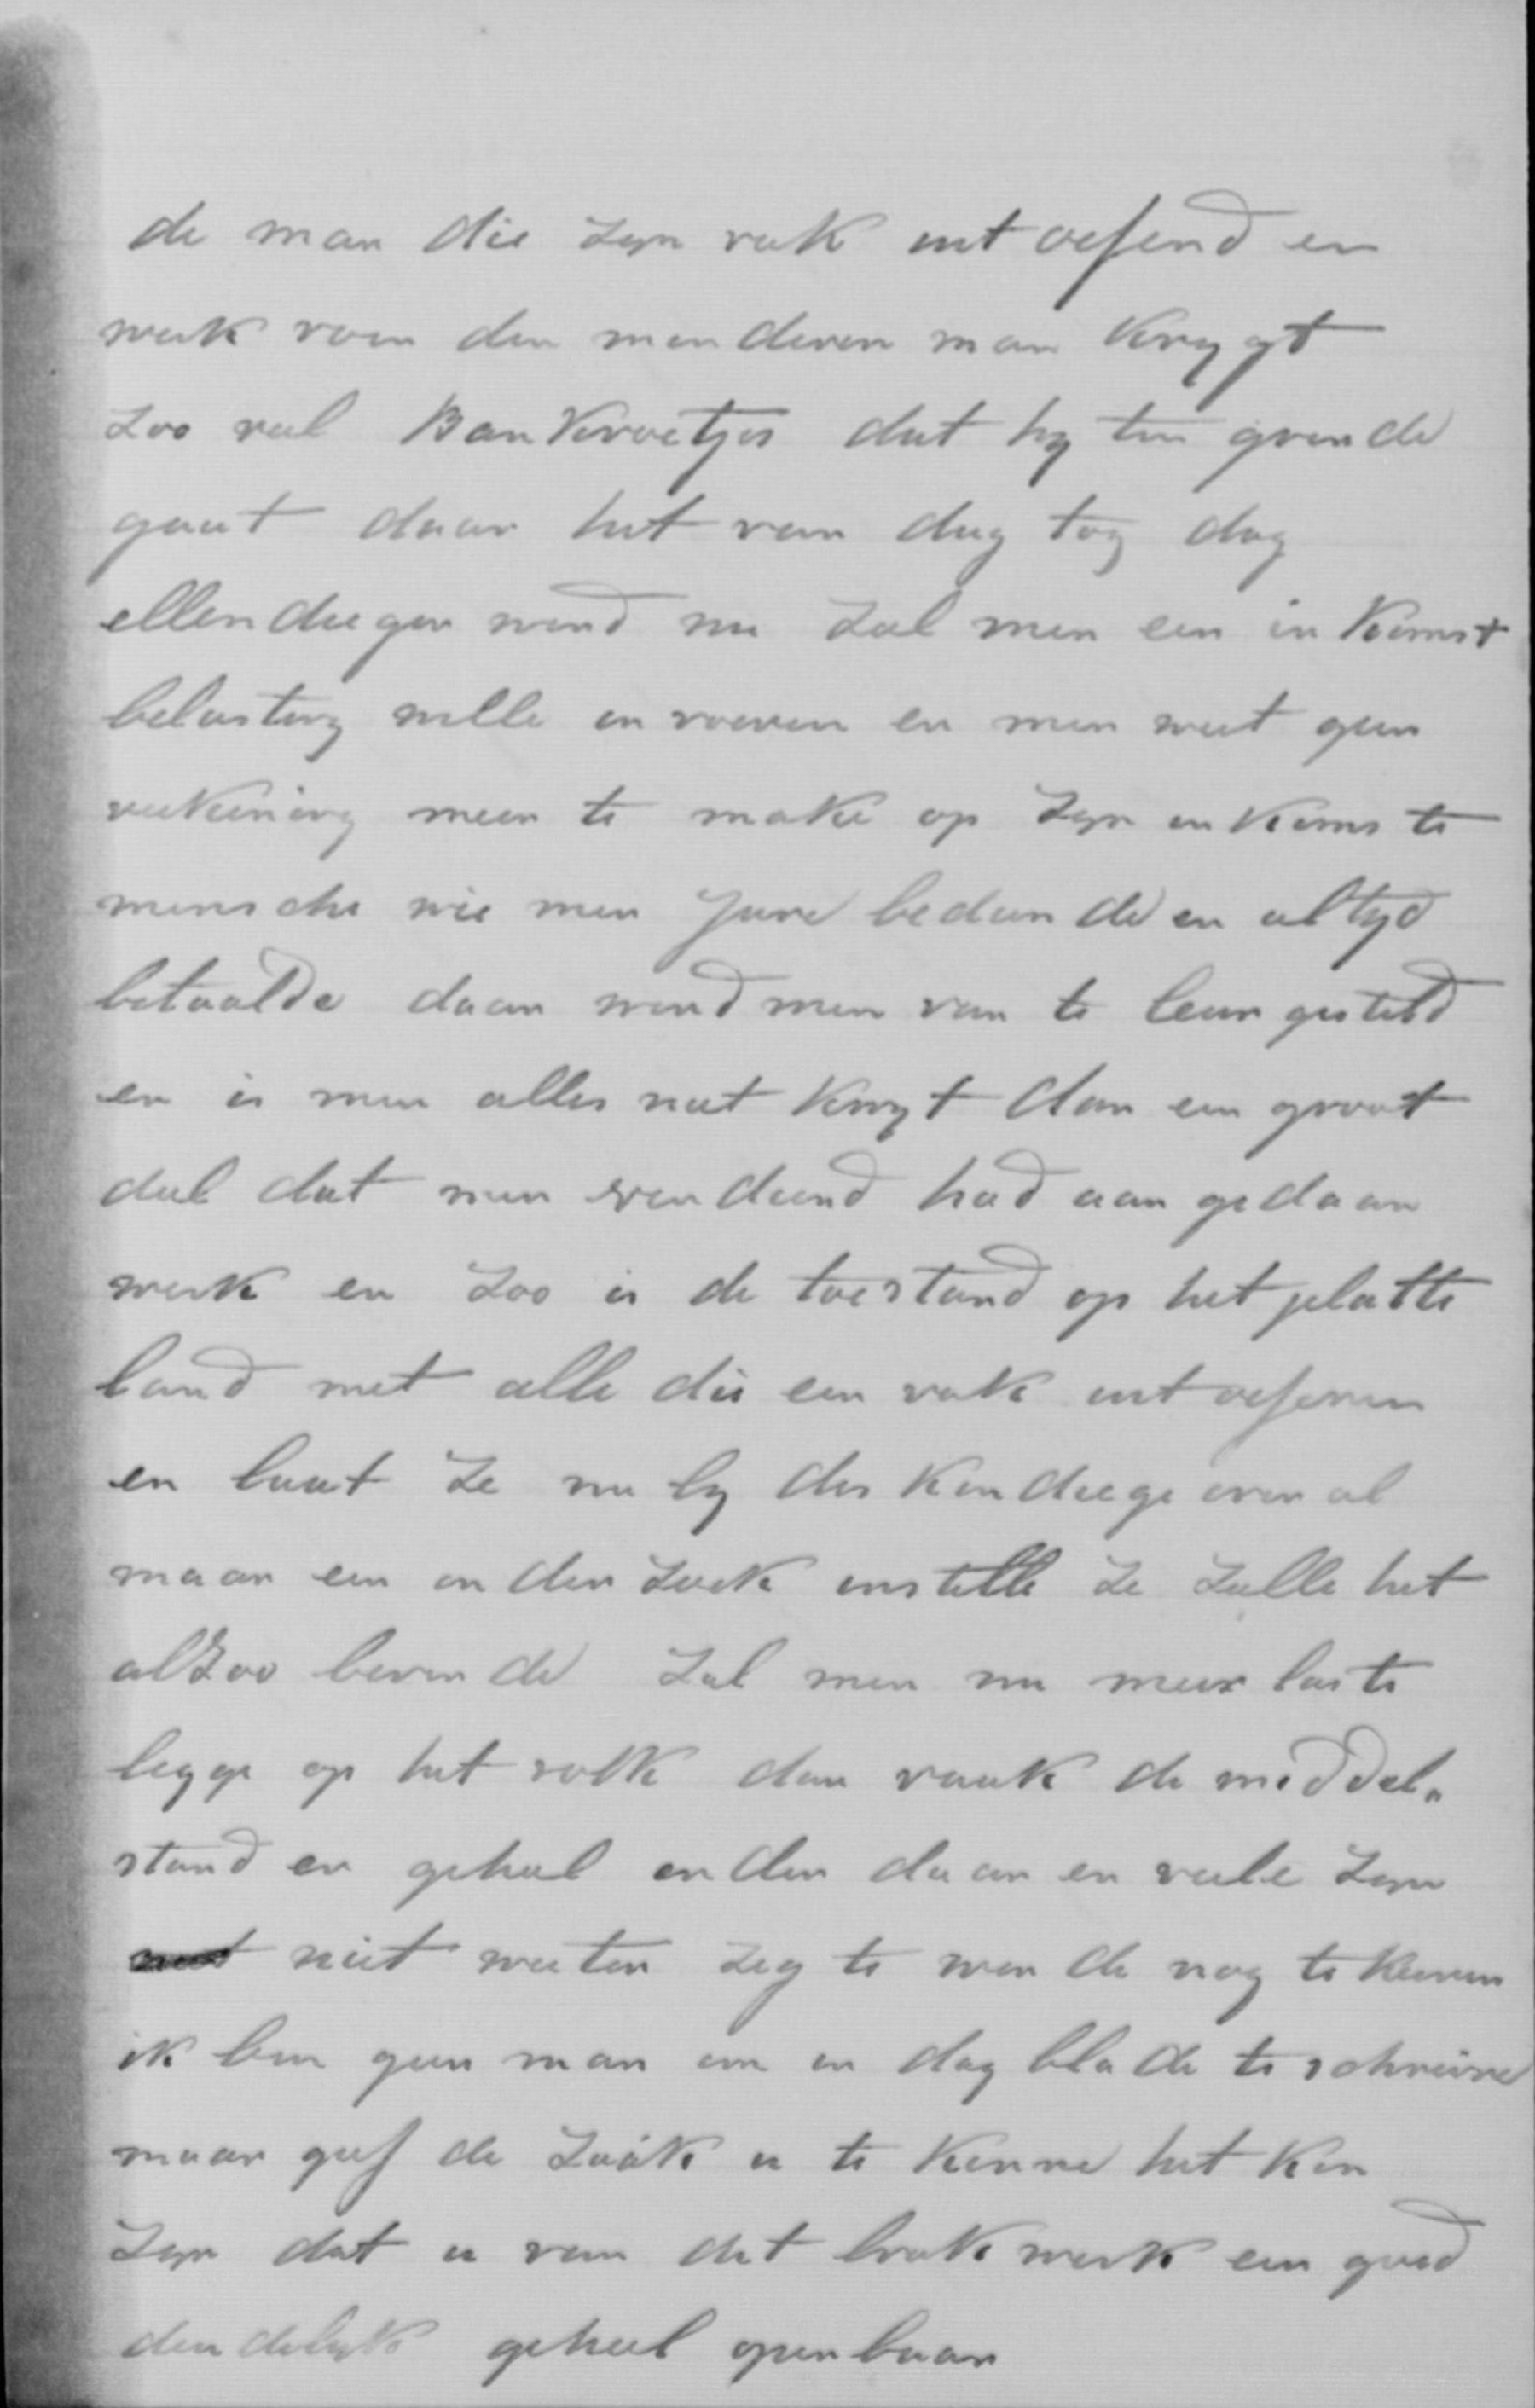 de man die zyn vak uit oefend en
werk voor den menderen man krygt
zoo veel Bankroetjes dat hy ten gronde
gaat daar het van dag tog dag
ellendieger word nu zal men een in komst
belasting wille in voeren en men weet geen
reekening meer te make op zyn in koms te
mensche wie men Jare bediende en altyd
betaalde daar word men van te leur gesteld
en is men alles niet kwyt dan een groot
deel dat men verdiend had aan gedaan
werk en zoo is de toestand op het platte
land met alle die een vak uit oefenen
en laat ze nu by des kundiege over al
maar een onder zoek instelle ze zulle het
alzoo bevinde zal men nu meer laste
legge op het volk dan raak de middel„
stand er geheel onder daar er veele zyn
niet weeten zig te wende nog te keeren
ik ben geen man om in dag blade te schreive
maar geef de zaak u te kenne het kan
zyn dat u van dit brok werk een goed
den delyk geheel open baar